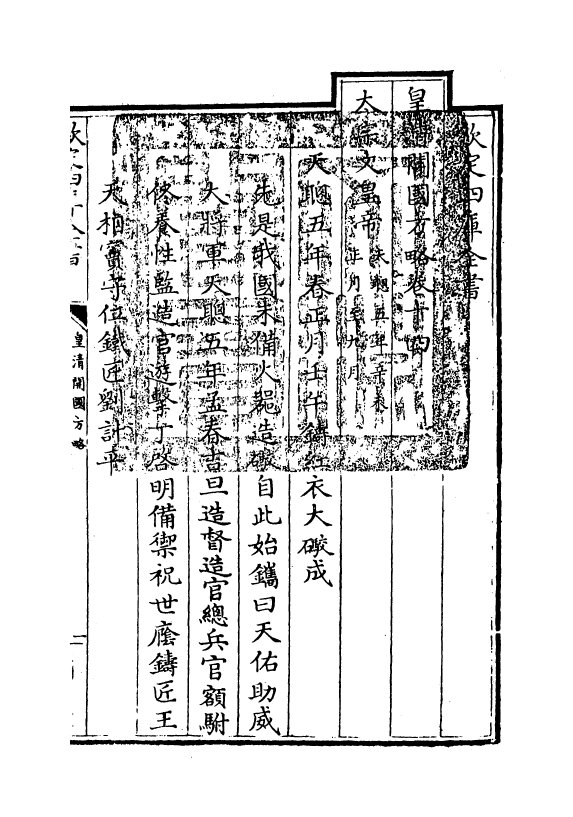 欽定四庫全書
皇清開國方略卷十四
太宗文皇帝 天聰五年辛未正月至九月
天聰五年春正月壬午鑄紅衣大礮成
先是我國未備火器造礮自此始鐫曰天佑助威
大將軍天聰五年孟春吉旦造督造官總兵官額駙
佟養性監造官遊擊丁啓明備禦祝世廕鑄匠王
天相竇守位鐵匠劉計平
皇清開國方略